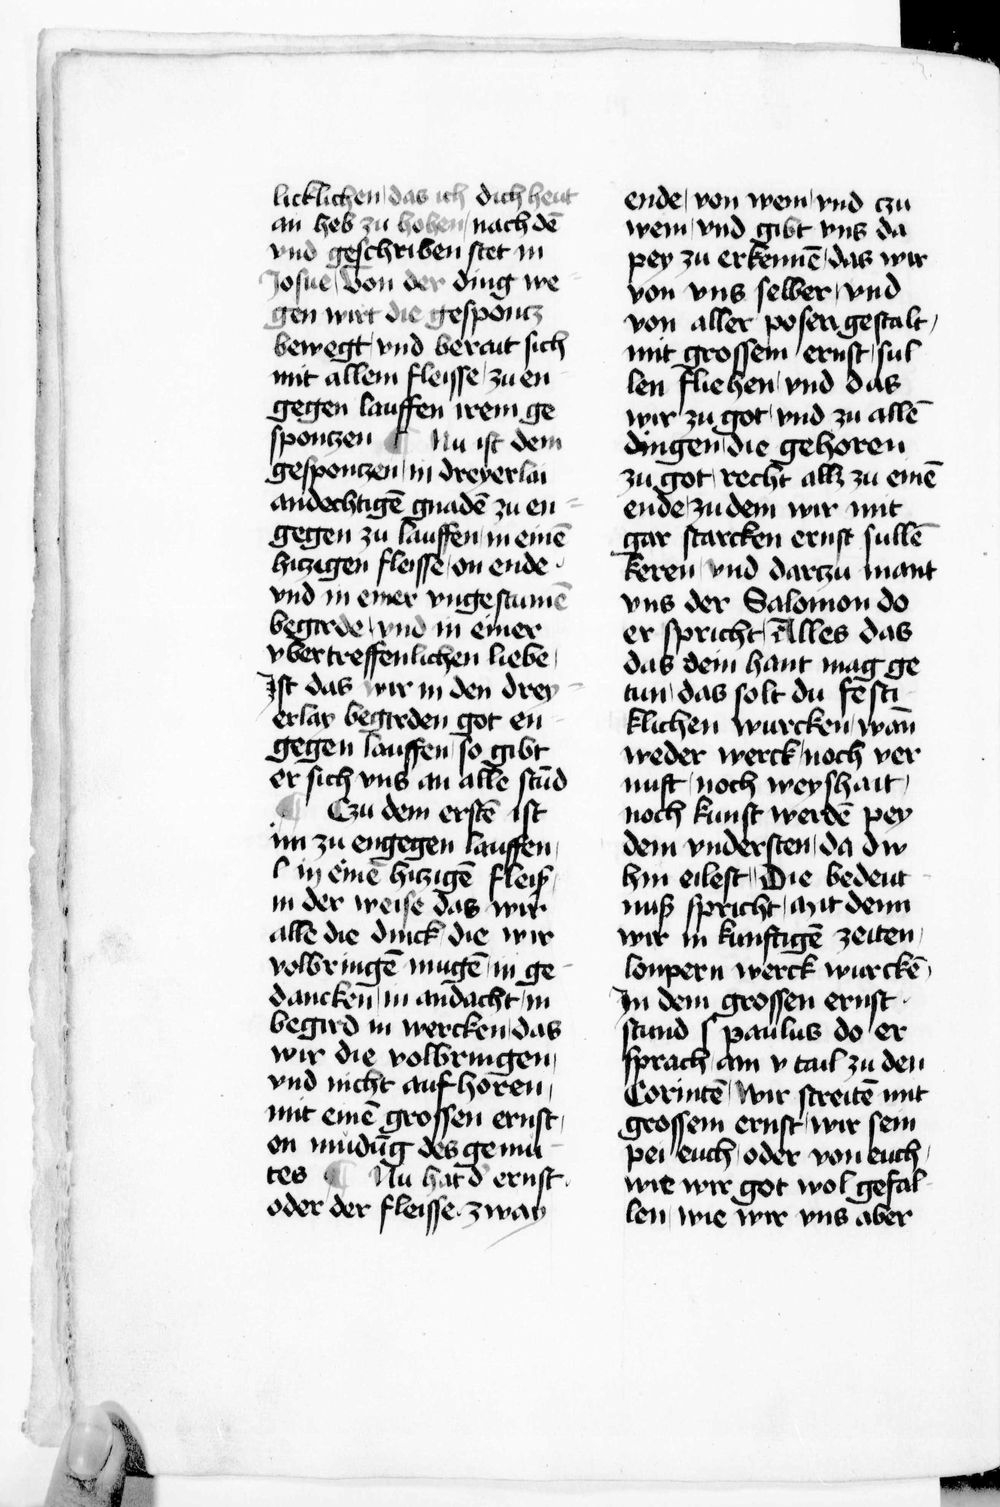 licklichen das ich dich heut
an heb zu hohen / nach dē
vnd geschriben stet in
Josue / Von der ding we-
gen wirt die gespontz
bewegt / vnd berait sich
mit allem fleisse / zu en-
gegen lauffen irem ge
spontzen ¶ Nu ist dem
gespontzen / in dreyerlai
andechtigē gnadē zu en-
gegen zu lauffen / in einē
hitzigen fleisse / on ende
vnd in einer vngestumē
begirde / vnd in einer
vbertreffenlichen liebe /
Ist das wir in den drey-
erlay begirden got en-
gegen lauffen / so gibt
er sich vns an alle stūd
¶ Czu dem erstē ist
im zu engegen lauffen /
in einē hitzigē fleiß /
in der weise das wir
alle die dinck / die wir
volbringē mugē / in ge-
dancken / in andacht / in
begird in wercken / das
wir die volbringen /
vnd nicht auf horen /
mit einē grossen ernst /
on mudūg des gemu-
tes ¶ Nu hat d' ernst
oder der fleisse zway
ende / von wem / vnd czu
wem / vnd gibt vns da
pey zu erkennē / das wir
von vns selber / vnd
von aller posen gestalt /
mit grossem ernst / sul
len fliehen / vnd das
wir zu got / vnd zu allē
dingen / die gehoren
zu got / recht allz zu einē
ende / zu dem wir mit
gar starcken ernst sullē
keren / vnd dartzu mant
vns der Salomon do
er spricht / Alles das
das dein hant mag ge
tun / das solt du festi-
klichen wurcken / wañ
weder werck / noch ver
nuft / noch weyshait /
noch kunst werdē pey
dem vndersten / da dw
hin eilest / Die bedeut-
nuß spricht / Mit denn
wir in kunftigē zeiten /
lonpern werck wurckē /
In dem grossen ernst
stund S paulus do er
sprach / am v tail zu den
Corintē / Wir streitē mit
grossem ernst / wir sein
pei euch / oder von euch /
wie wir got wol gefal-
len / wie wir vns aber